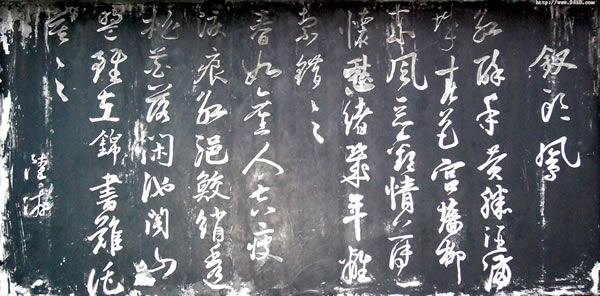 http://www.9610.com
釵頭鳳
紅酥手黃縢酒滿
城春色宮牆柳
東風惡歡情薄一
懷愁緒幾年離
索錯々々
春如舊人空瘦
淚痕紅浥鮫綃透
桃花落閑池閣山
盟雖在錦書難託
莫々々
陸游